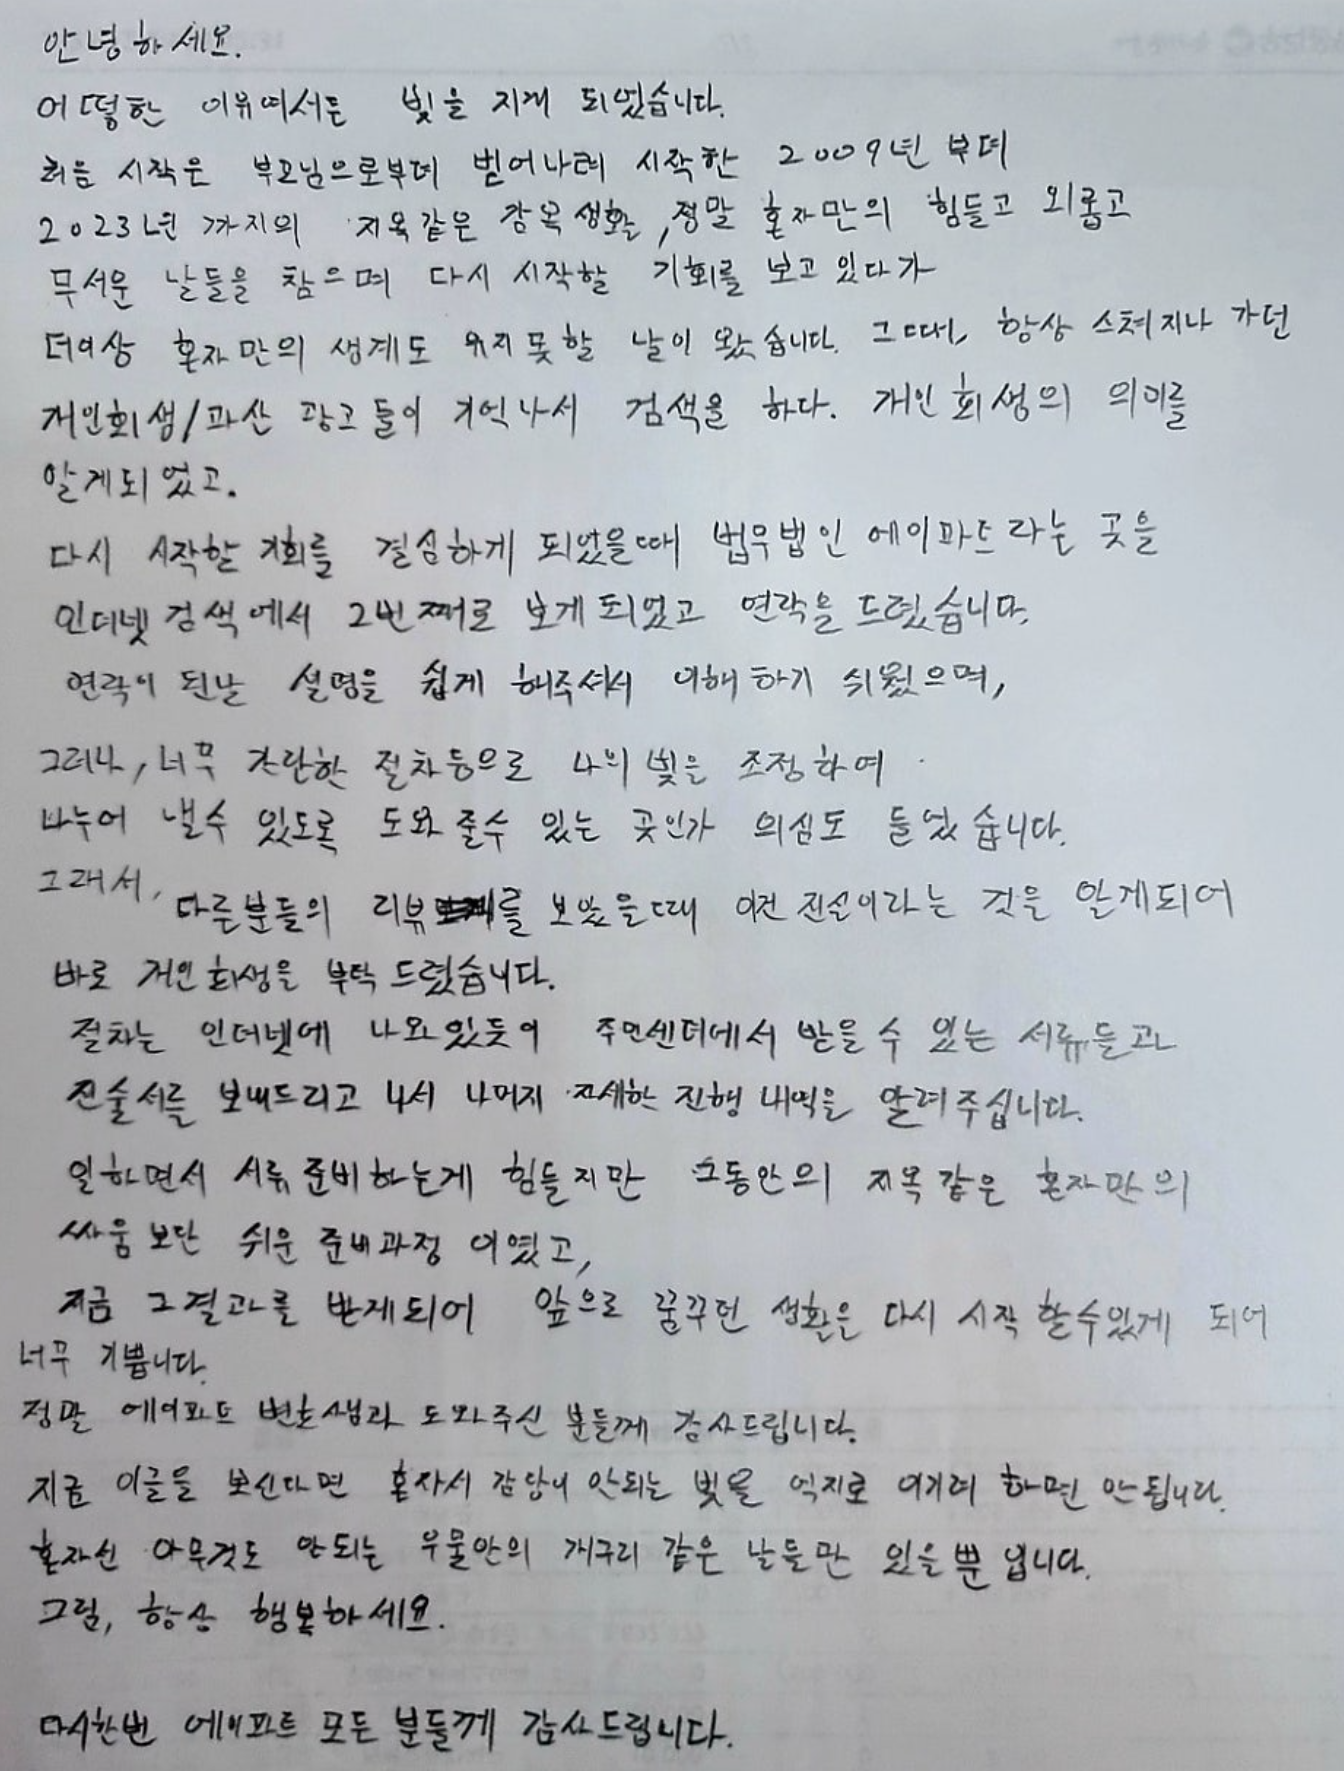 안녕하세요.
어떻한 이유에서든 빚을 지게 되었습니다.
처음 시작은 부모님으로부터 벋어나려 시작한 2009년 부터
2023년 까지의 지옥같은 감옥생활, 정말 혼자만의 힘들고 외롭고
무서운 날들을 참으며 다시 시작할 기회를 보고 있다가
더이상 혼자만의 생계도 유지 못할 날이 왔습니다. 그때, 항상 스쳐지나 가던
개인회생/파산 광고들이 기억나서 검색을 하다. 개인회생의 의미를
알게되었고.
다시 시작할 기회를 결심하게 되었을때 법무법인 에이파트라는 곳을
인터넷 검색에서 2번째로 보게 되었고 연락을 드렸습니다.
연락이 된날 설명을 쉽게 해주셔서 이해하기 쉬웠으며,
그러나, 너무 간단한 절차등으로 나의 빚을 조정하여
나누어 낼수 있도록 도와 줄수 있는 곳인가 의심도 들었습니다.
그래서, 다른분들의 리뷰를 보았을때 이건 진실이라는 것을 알게되어
바로 개인회생을 부탁드렸습니다.
절차는 인터넷에 나와있듯이 주민센터에서 받을 수 있는 서류들과
진술서를 보내드리고 나서 나머지 자세한 진행 내역을 알려주십니다.
일하면서 서류 준비하는게 힘들지만 그동안의 지옥같은 혼자만의
싸움보단 쉬운 준비과정 이였고,
지금 그결과를 받게되어 앞으로 꿈꾸던 생활을 다시 시작 할수있게 되어
너무 기쁩니다.
정말 에이파트 변호사님과 도와주신 분들께 감사드립니다.
지금 이글을 보신다면 혼자서 감당이 안되는 빚을 억지로 이기려 하면 안됩니다.
혼자선 아무것도 안되는 우물안의 개구리 같은 날들만 있을뿐 입니다.
그럼, 항상 행복하세요.
다시한번 에이파트 모든 분들께 감사드립니다.